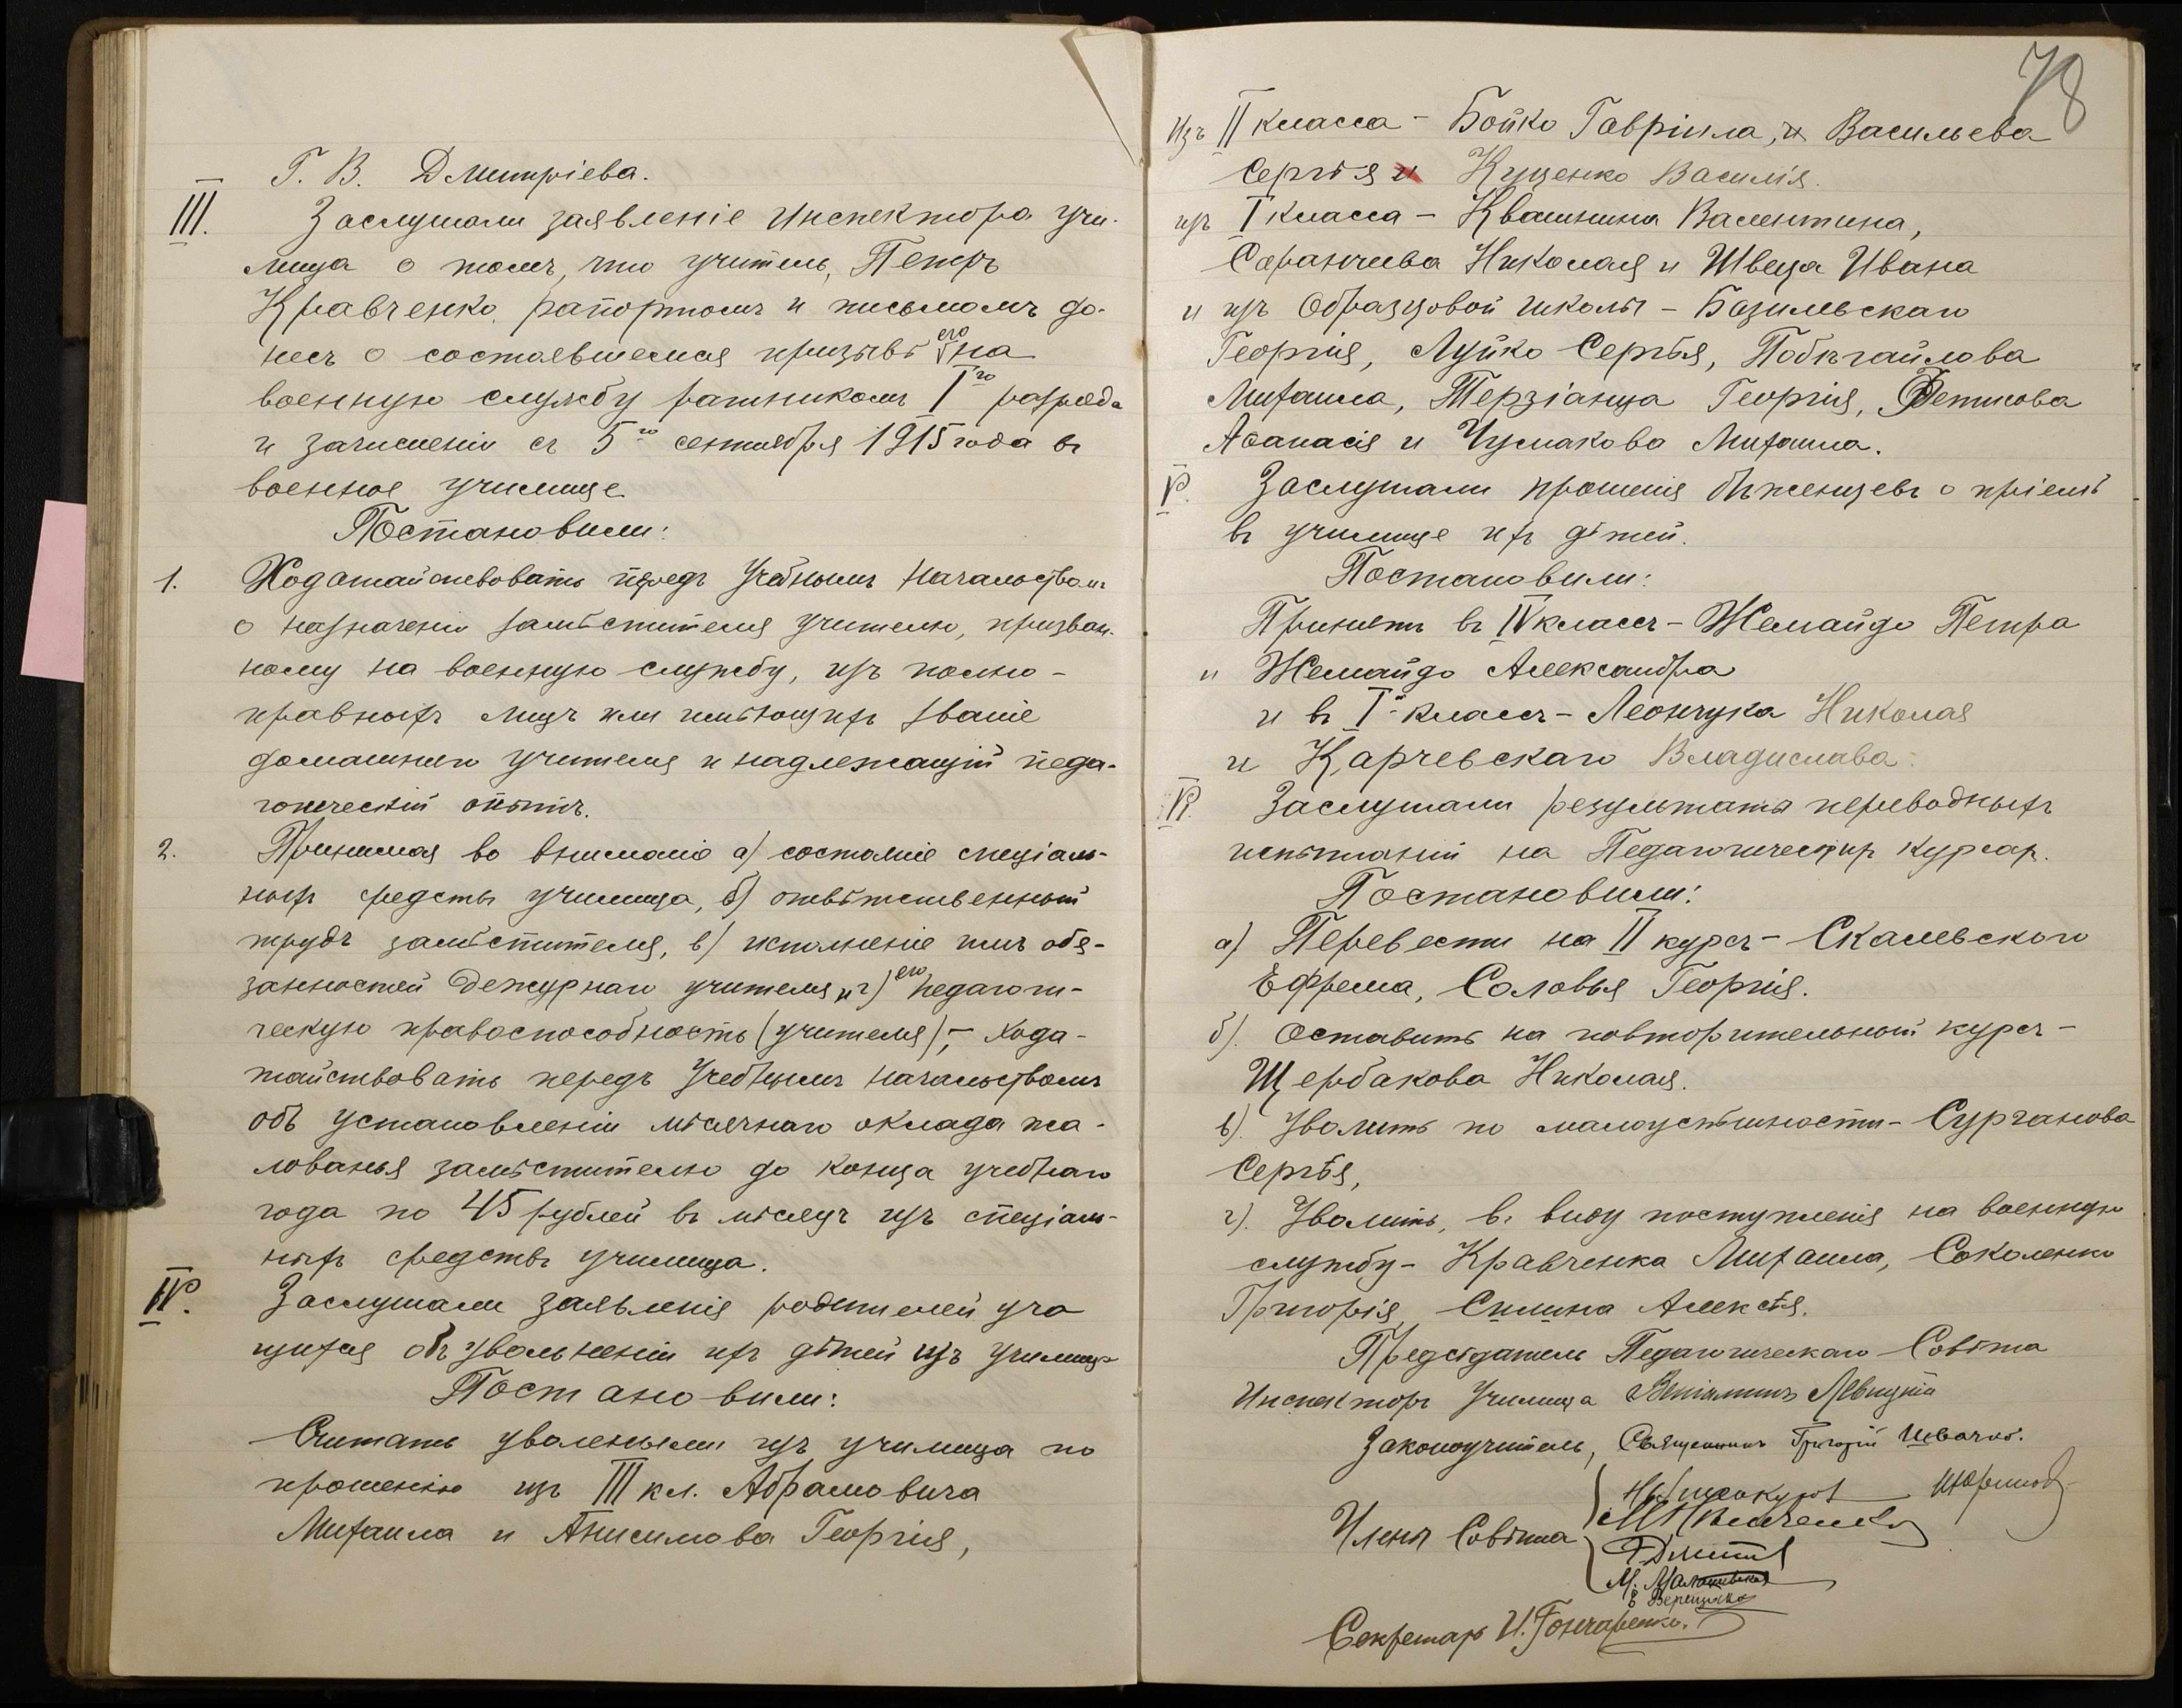 Г. В. Дмитріева.
III. Заслушали заявленіе Инспектора учи-
лища о томъ, что учитель, Петръ
Кравченко, рапортомъ и письмомъ до-
несъ о состоявшемся призывѣ его на
военную службу ратникомъ I го разряда
и зачисленіи съ 5 го сентября 1915 года въ
военное училище
Постановили:
1. Ходатайствовать передъ Учебнымъ Начальствомъ
о назначеніи замѣстителя учителю, призван-
ному на военную службу, изъ полно-
правныхъ лицъ или имѣющихъ званіе
домашняго учителя и надлежащій педа-
гогическій опытъ.
2. Принимая во вниманіе а) состояніе спеціаль-
ныхъ средствъ училища, б) отвѣтственный
трудъ замѣстителя, в) исполненіе имъ обя-
занностей дежурнаго учителя и г) его педагоги-
ческую правоспособность (учителя), – хода-
тайствовать передъ Учебнымъ Начальствомъ
объ установленіи мѣсячнаго оклада жа-
лованья замѣстителю до конца учебнаго
года по 45 рублей въ мѣсяцъ изъ спеціаль-
ныхъ средствъ училища.
IV. Заслушали заявленія родителей уча
щихся объ увольненіи ихъ дѣтей изъ училища
Постановили:
Считать уволенными изъ училища по
прошенію изъ III кл. Абрамовича
Михаила и Анисимова Георгія,
78
Изъ II класса – Бойко Гавріила, и Васильева
Сергѣя и Куценко Василія.
изъ I класса – Квашнина Валентина,
Саранчева Николая и Швеца Ивана
и изъ Образцовой школы – Базилевскаго
Георгія, Луйко Сергѣя, Побѣгайлова
Михаила, Терзіанца Георгія, Фетисова
Аѳанасія и Чумакова Михаила.
V. Заслушали прошенія бѣженцевъ о пріемѣ
въ училище ихъ дѣтей.
Постановили:
Принять въ IV классъ – Жемайдо Петра
и Жемайдо Александра
и въ I й классъ – Леончука Николая
и Карчевскаго Владислава.
VI. Заслушали результаты переводныхъ
испытаній на Педагогическихъ курсахъ.
Постановили:
а) Перевести на II курсъ – Скалевскаго
Ефрема, Соловья Георгія.
б). Оставить на повторительный курсъ –
Щербакова Николая.
в). Уволить по малоуспѣшности – Сурганова
Сергѣя,
г). Уволить, въ виду поступленія на военную
службу – Кравченка Михаила, Соколенко
Григорія, Силина Алексѣя.
Предсѣдатель Педагогическаго Совѣта
Инспекторъ Училища Веніаминъ Левицкій
Законоучитель, Священникъ Григорій Швачко.
Члены Совѣта
Секретарь И. Гончаренко.